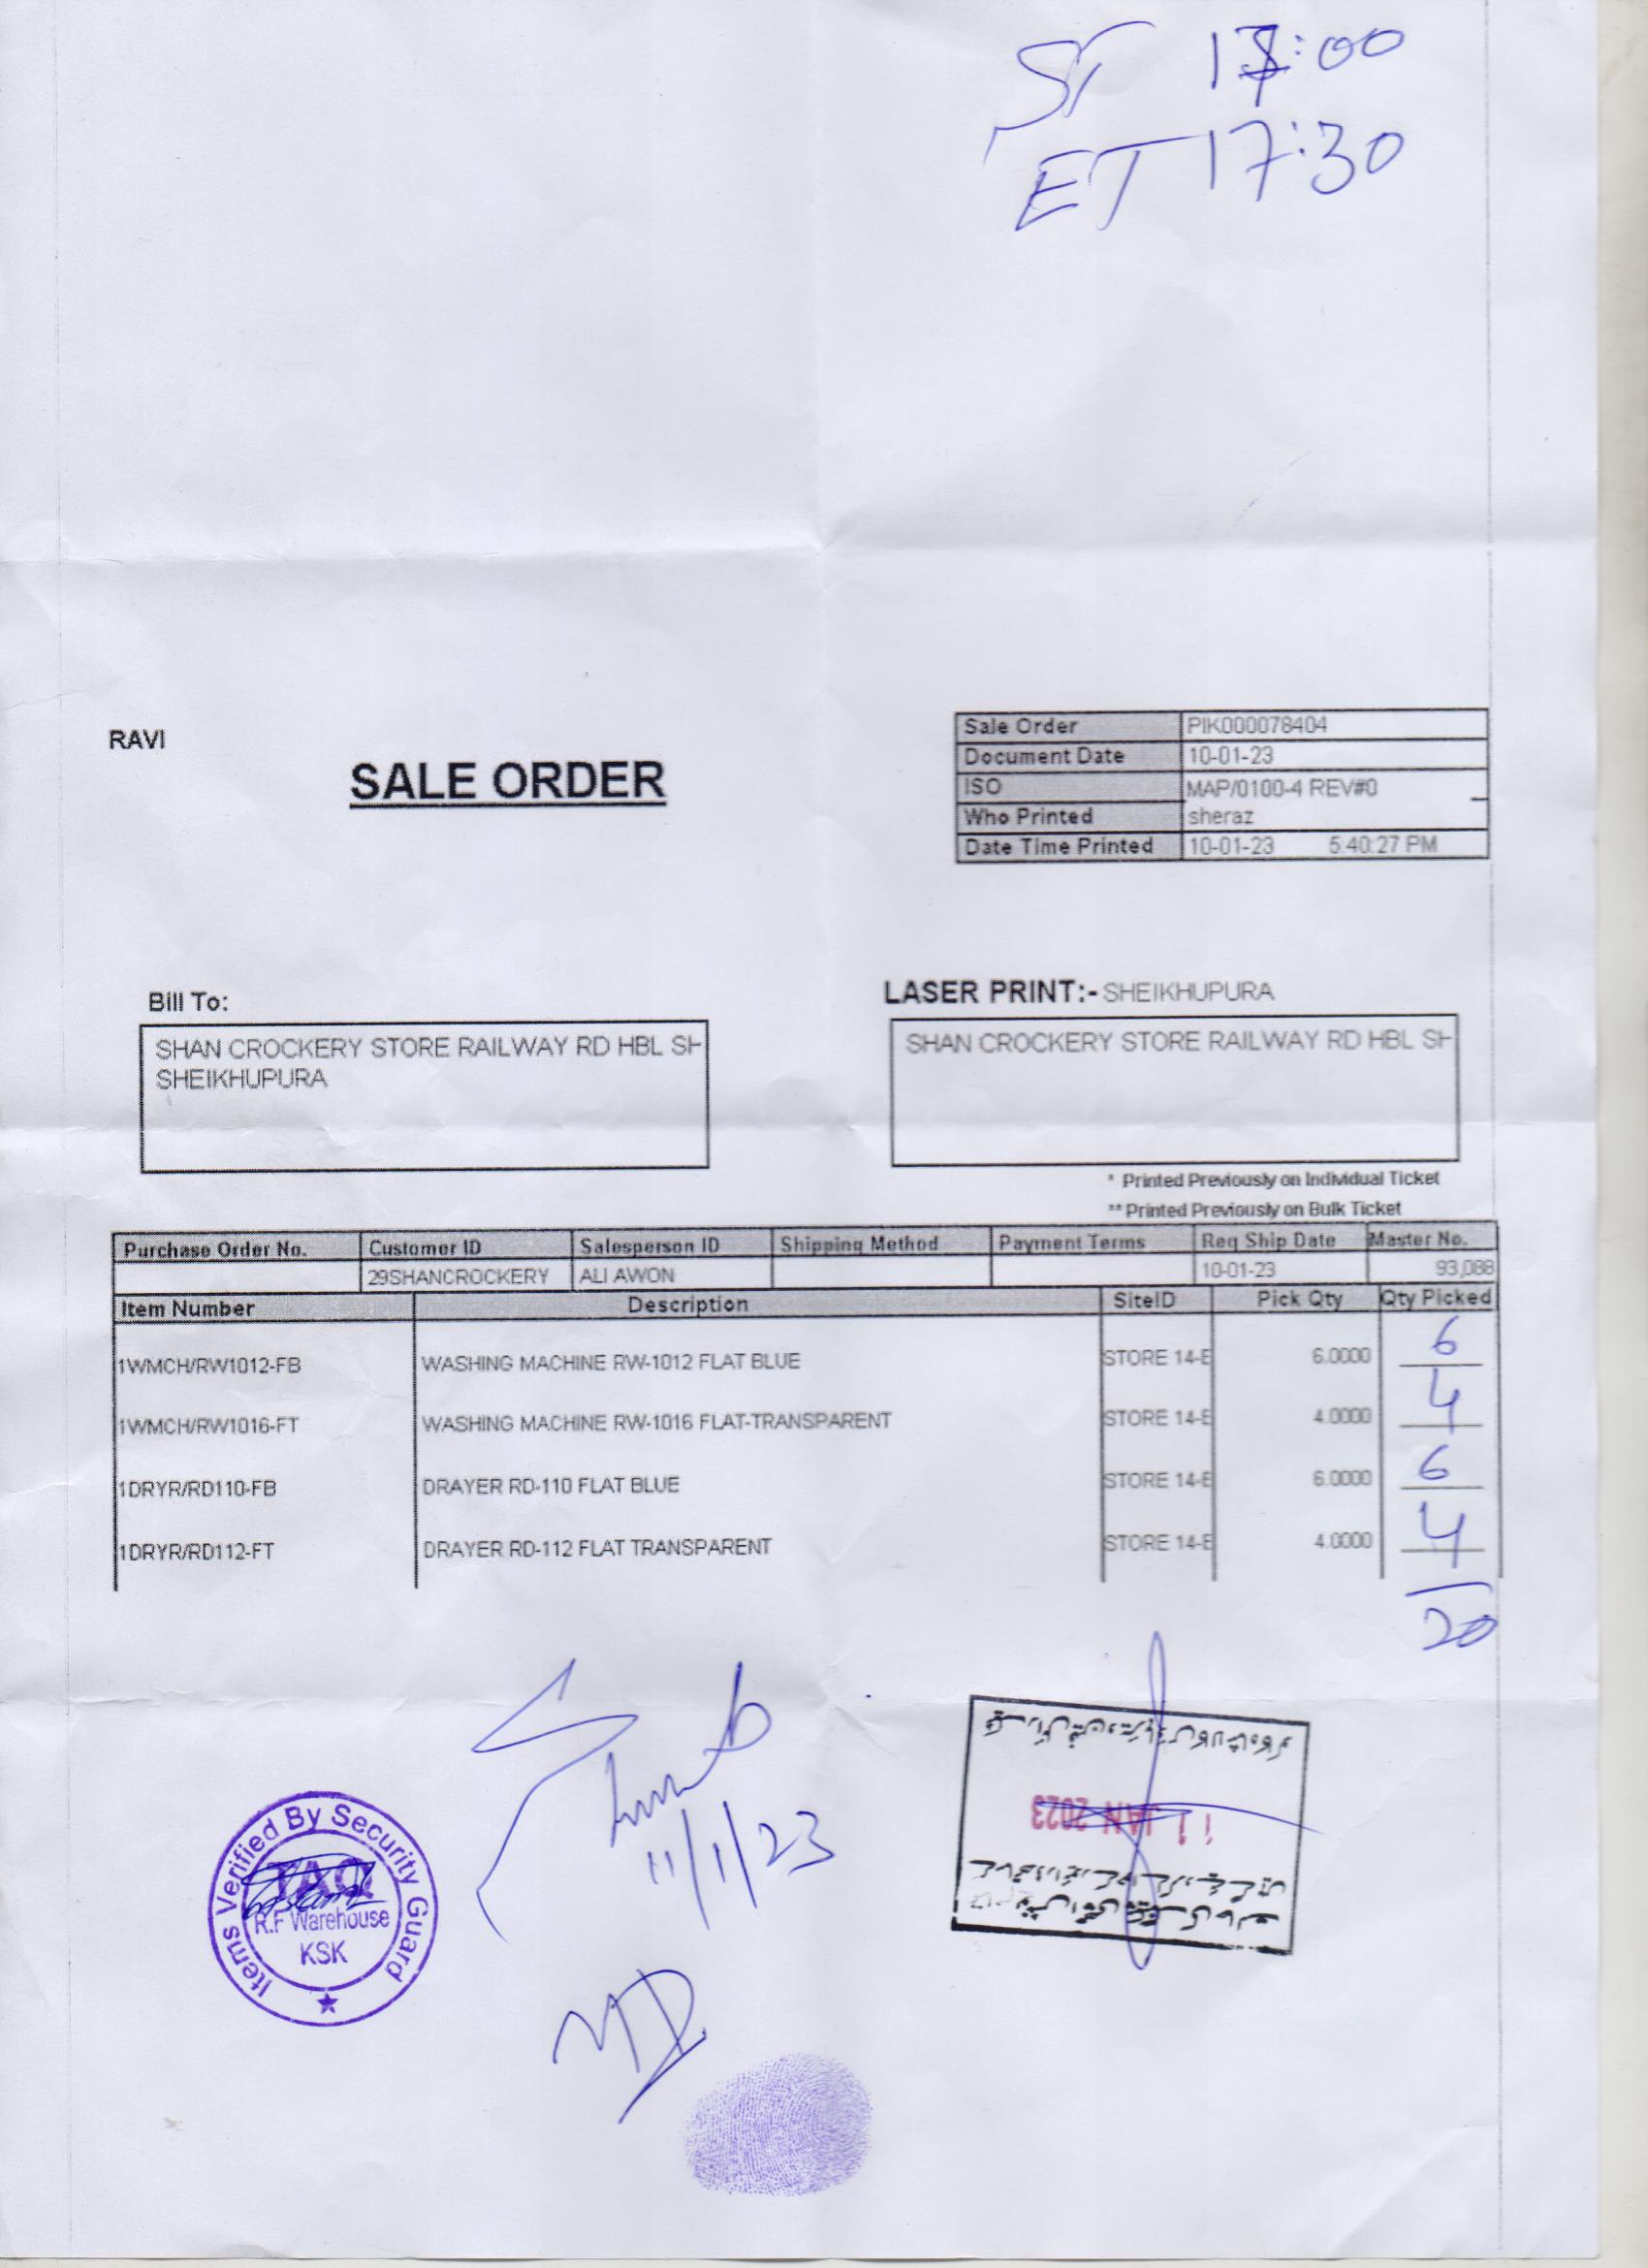 ST 17:00
ET 17:30
RAVI
SALE ORDER
Sale Order PIK000078404
Document Date 10-01-23
ISO MAP/0100-4 REV#0
Who Printed sheraz
Date Time Printed 10-01-23 5:40:27 PM
Bill To:
SHAN CROCKERY STORE RAILWAY RD HBL SH
SHEIKHUPURA
LASER PRINT:- SHEIKHUPURA
SHAN CROCKERY STORE RAILWAY RD HBL SH
* Printed Previously on Individual Ticket
** Printed Previously on Bulk Ticket
Purchase Order No. Customer ID Salesperson ID Shipping Method Payment Terms Req Ship Date Master No.
29SHANCROCKERY ALI AWON 10-01-23 93,088
Item Number Description SiteID Pick Qty Qty Picked
1WMCH/RW1012-FB WASHING MACHINE RW-1012 FLAT BLUE STORE 14-E 6.0000 6
1WMCH/RW1016-FT WASHING MACHINE RW-1016 FLAT-TRANSPARENT STORE 14-E 4.0000 4
1DRYR/RD110-FB DRAYER RD-110 FLAT BLUE STORE 14-E 6.0000 6
1DRYR/RD112-FT DRAYER RD-112 FLAT TRANSPARENT STORE 14-E 4.0000 4
20
11/1/23
Items Verified By Security Guard
TAQ
R.F Warehouse
KSK
11 JAN 2023